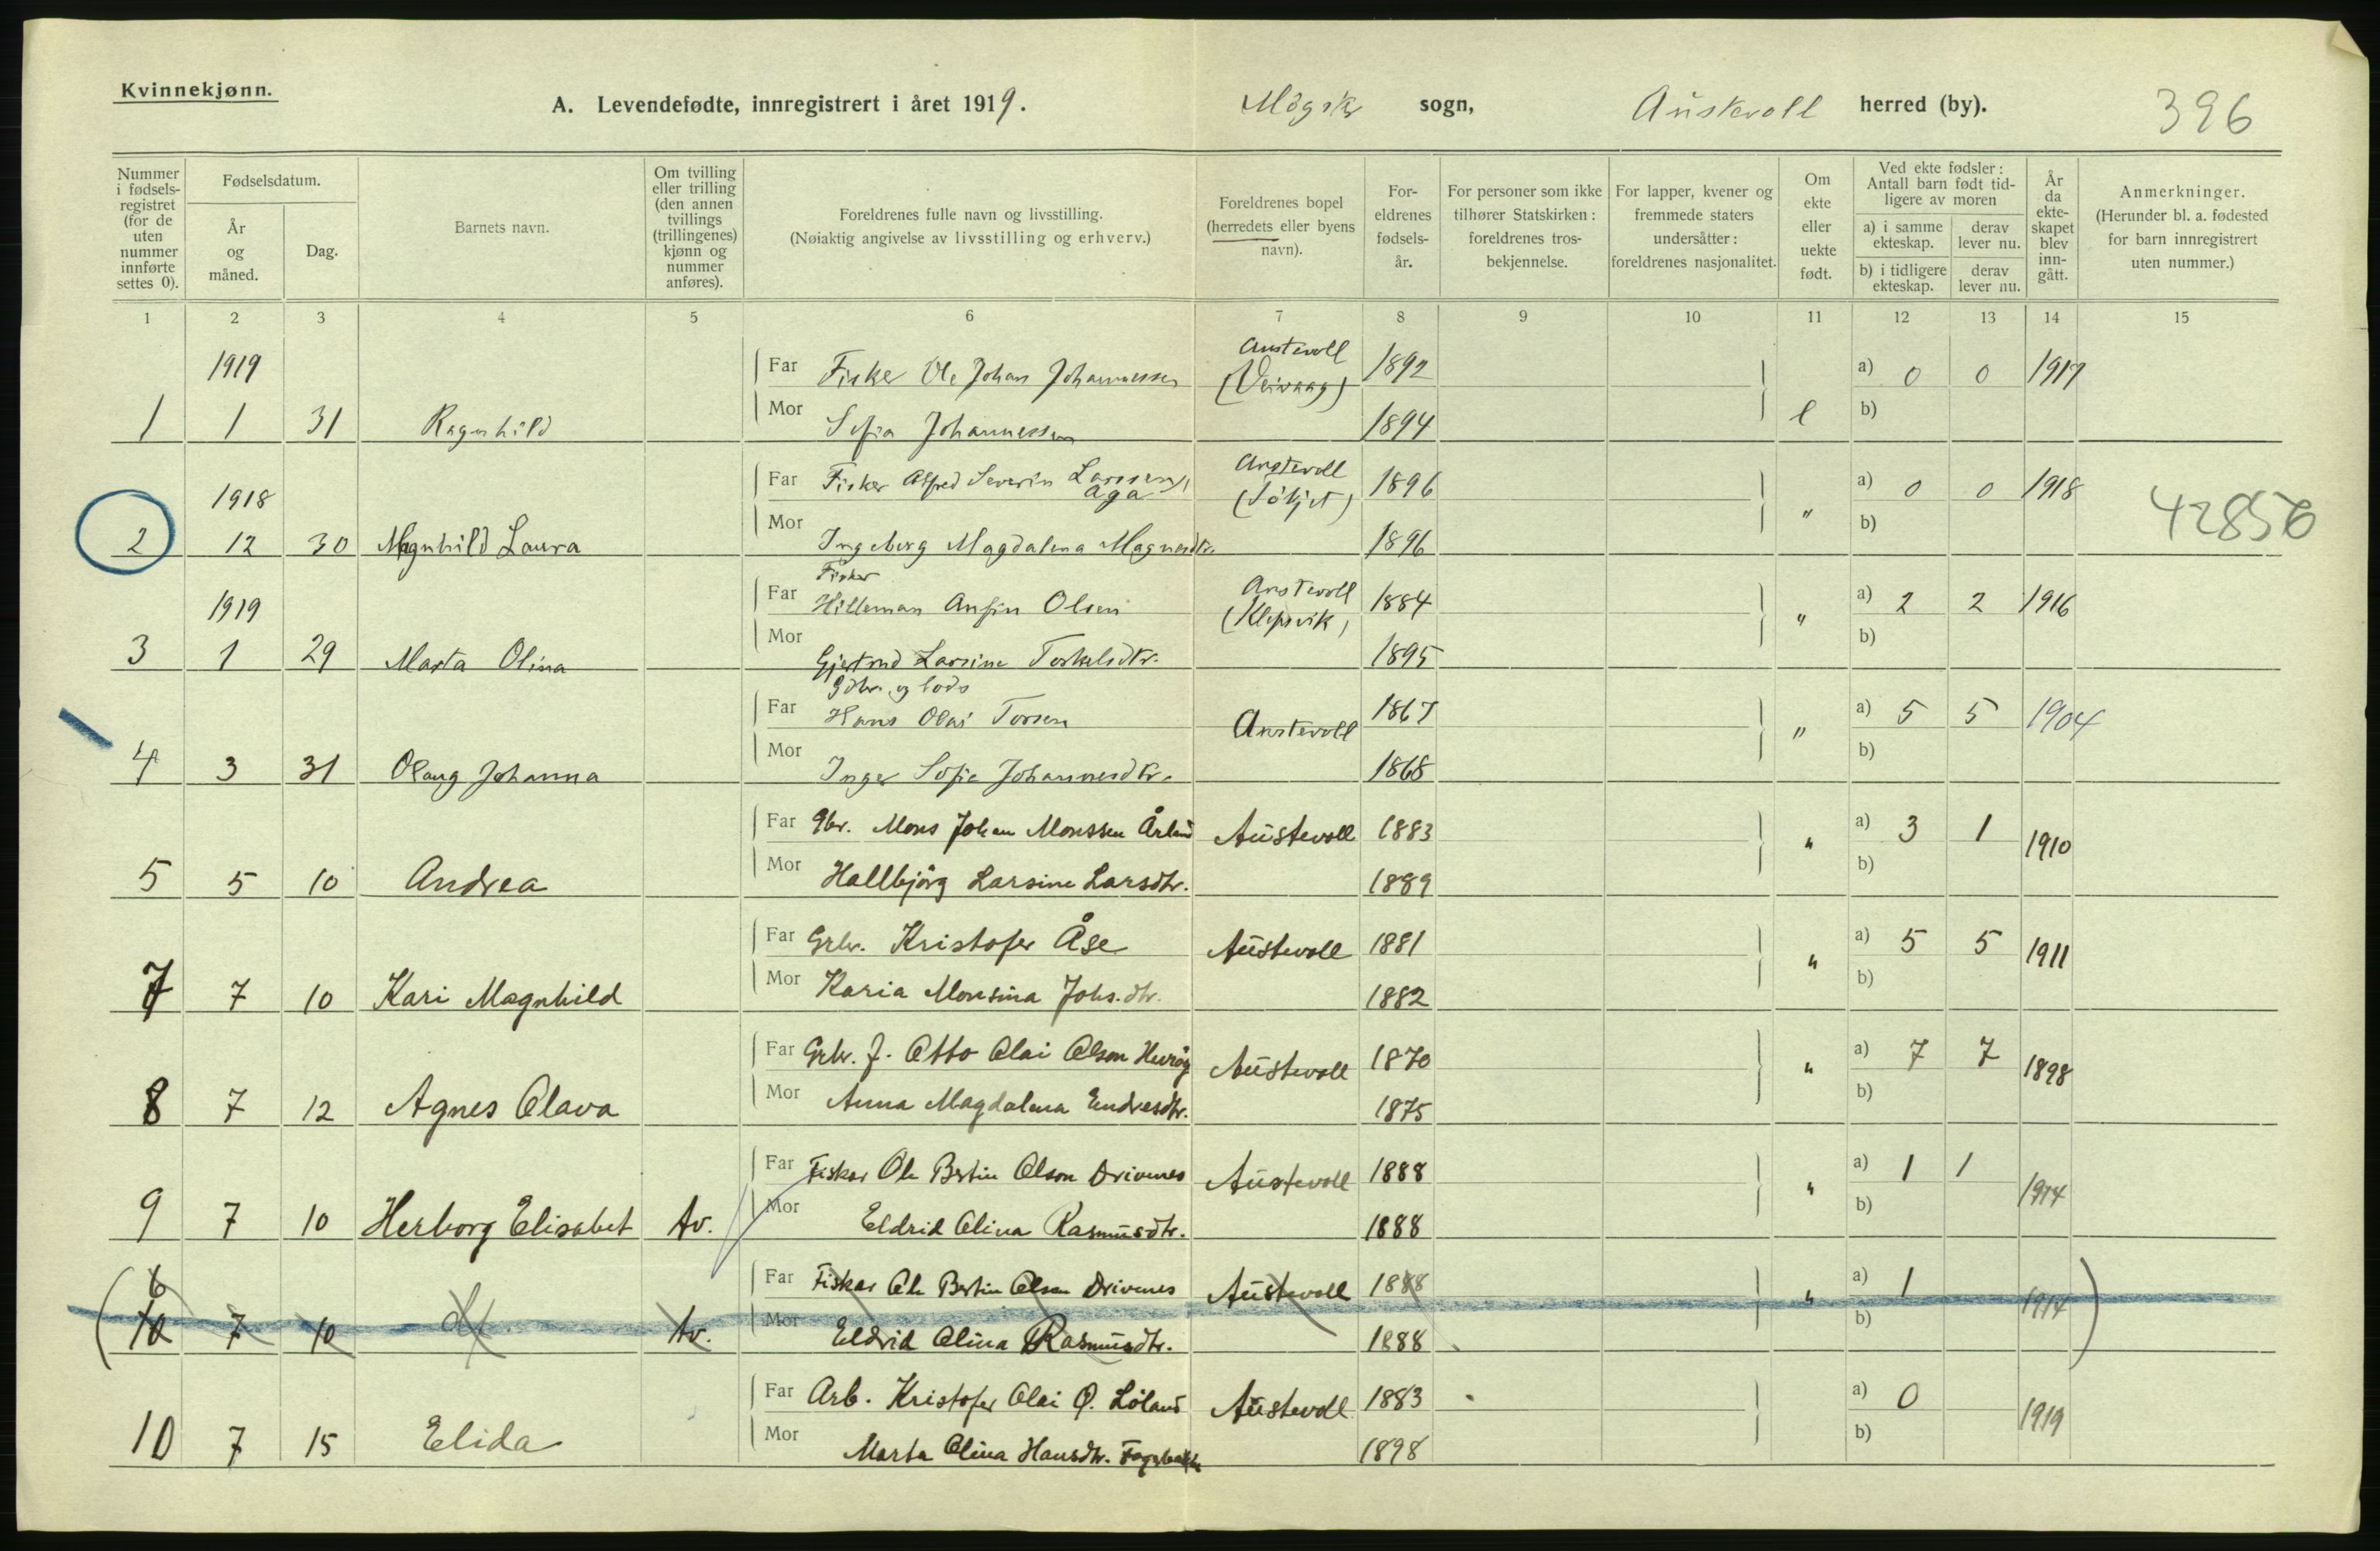 Kvinnekjønn.
A. Levendefødte, innregistrert i året 1919. Møgsk sogn, Austevoll herred (by). 396
Nummer i fødselsregistret (for de uten nummer innførte settes 0).
Fødselsdatum.
År og måned.
Dag.
Barnets navn.
Om tvilling eller trilling (den annen tvillings (trillingenes) kjønn og nummer anføres).
Foreldrenes fulle navn og livsstilling.
(Nøiaktig angivelse av livsstilling og erhverv.)
Foreldrenes bopel (herredets eller byens navn).
Foreldrenes fødselsår.
For personer som ikke tilhører Statskirken: foreldrenes trosbekjennelse.
For lapper, kvener og fremmede staters undersåtter: foreldrenes nasjonalitet.
Om ekte eller uekte født.
Ved ekte fødsler: Antall barn født tidligere av moren
a) i samme ekteskap. derav lever nu.
b) i tidligere ekteskap. derav lever nu.
År da ekteskapet blev inngått.
Anmerkninger.
(Herunder bl. a. fødested for barn innregistrert uten nummer.)
1 2 3 4 5 6 7 8 9 10 11 12 13 14 15
1919 Far Fisker Ole Johan Johannessen Austevoll 1892 a) 0 0 1917
1 1 31 Ragnhild Mor Sofia Johannessen 1894 e b)
1918 Far Fisker Alfred Severin Larssen Aga Austevoll 1896 a) 0 0 1918
2 12 30 Magnhild Laura Mor Ingeborg Magdalena Magnesdtr. 1896 " b) 42856
Fisker
1919 Far Hilleman Anfin Olsen Austevoll (Klepsvik) 1884 a) 2 2 1916
3 1 29 Marta Olina Mor Gjertrud Larsine Torkelsdtr. 1895 " b)
Gdbr. og lods
Far Hans Olai Torsen Austevoll 1867 a) 5 5 1904
4 3 31 Olaug Johanna Mor Inger Sofie Johannesdtr. 1868 " b)
Far Gbr. Mons Johan Monssen Årland Austevoll 1883 a) 3 1 1910
5 5 10 Andrea Mor Hallbjörg Larsine Larsdtr. 1889 " b)
Far Grbr. Kristofer Åse Austevoll 1881 a) 5 5 1911
7 7 10 Kari Magnhild Mor Karia Monsina Johs.dtr. 1882 " b)
Far Grbr. J. Otto Olai Olson Austevoll 1870 a) 7 7 1898
8 7 12 Agnes Olava Mor Anna Magdalena Endresdtr. 1875 " b)
Far Fiskar Ole Bertin Olson Drivenes Austevoll 1888 a) 1 1 1914
9 7 10 Herborg Elisabet tv. Mor Eldrid Olina Rasmusdtr. 1888 " b)
6 Far Fiskar Ole Bertin Olson Drivenes Austevoll 1888 a) 1 1914
(10 7 10 tv. Mor Eldrid Olina Rasmusdtr. 1888 " b) )
Far Arb. Kristofer Olai O. Löland Austevoll 1883 a) 0 1919
10 7 15 Elida Mor Marta Olina Hansdtr. 1898 b)